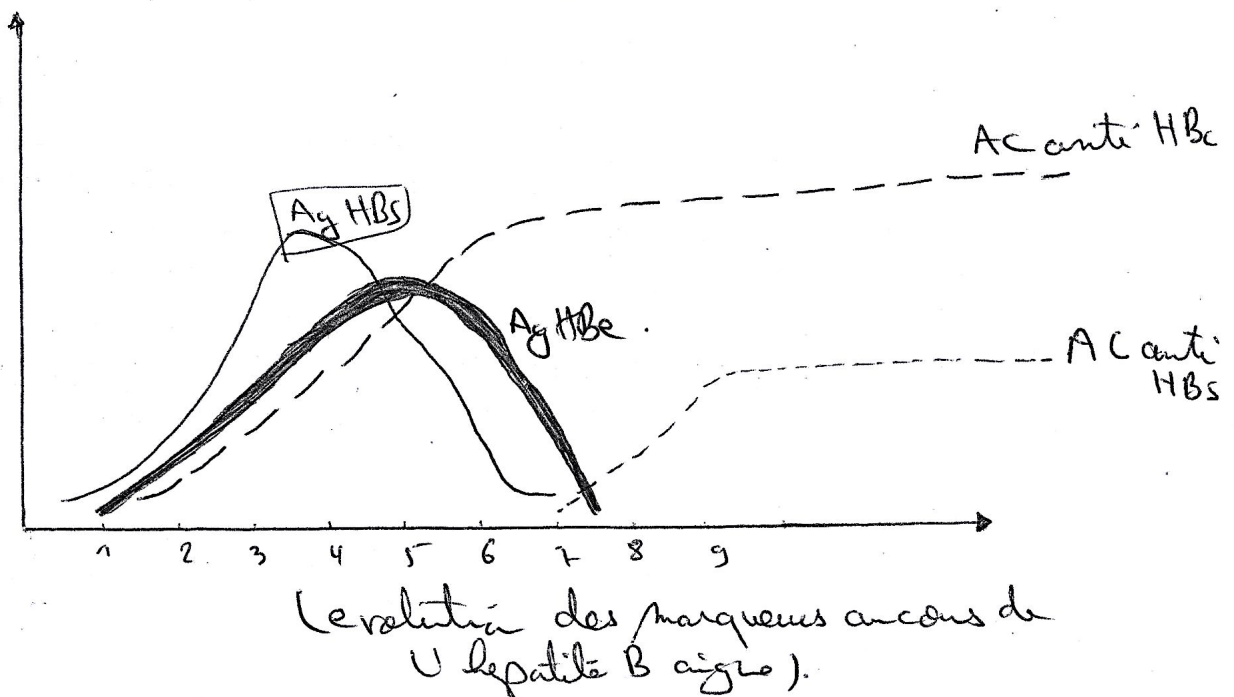 AC anti HBc
Ag HBs
Ag HBe .
AC anti
HBs
1 2 3 4 5 6 7 8 9
(evolution des marqueurs au cours de
l'hepatite B aigue).